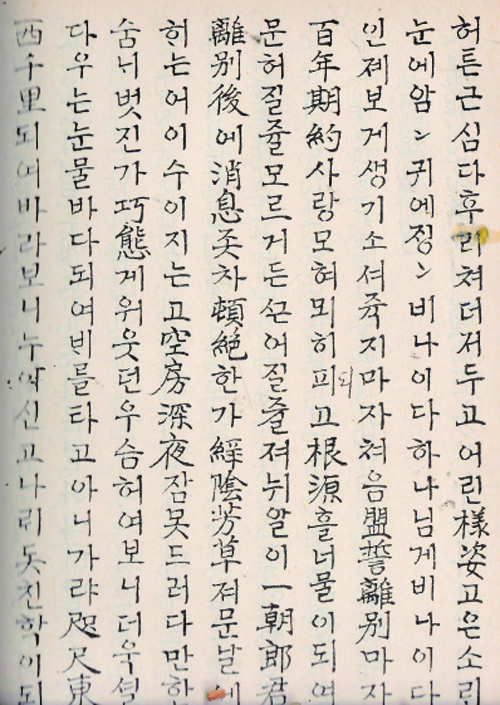 허튼근심다후리쳐더저두고어린樣姿고은소리
눈에암ン귀에징ン비나이다하나님게비나이다
인졔보게생기소셔쥭지마자쳐음盟誓離別마자
百年期約사랑모혀뫼히되피고根源흘너물이되여
문허질쥴모르거든ᄭᅳᆫ어질쥴져뉘알이一朝郎君
離別後에消息죳차頓絶한가綠陰芳草져문날에
히는어이수이지는고空房深夜잠못드러다만한
숨너벗진가巧態게워웃던우슴허여보니더욱설
다우는눈물바다되여비를타고아니가랴咫尺東
西千里되여바라보니누신고나리돗친학이되